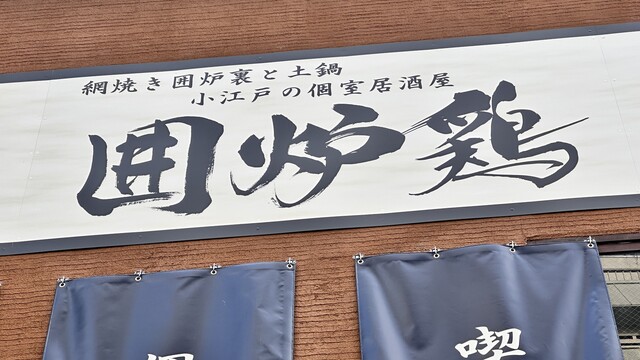 網焼き囲炉裏と土鍋
小江戸の個室居酒屋
囲炉鶏
喫